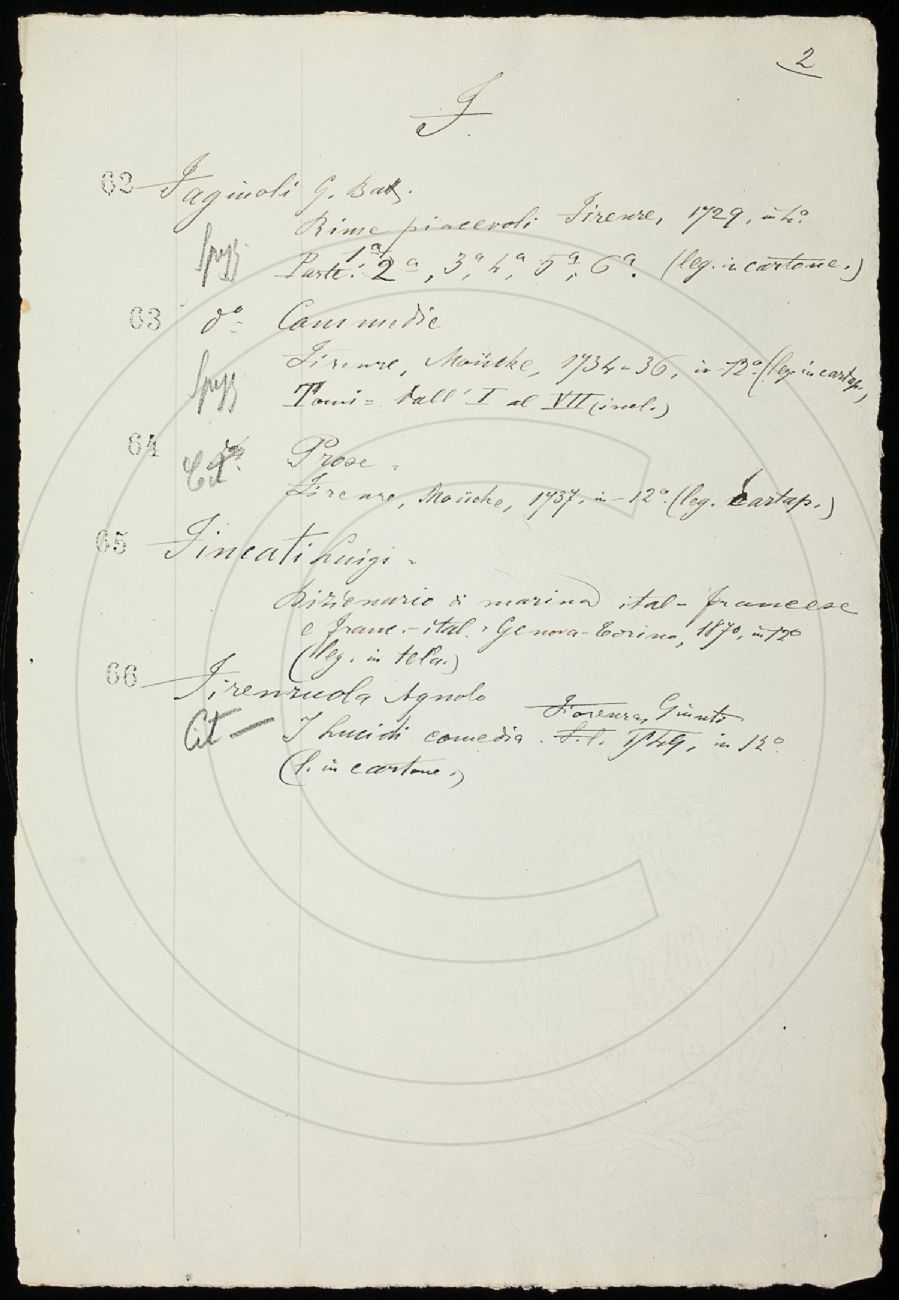 2
F.
62 Fagiuoli G. Bat.
Rime piacevoli Firenze, 1729, in 4º
Parte: 1ª 2ª, 3ª, 4ª, 5ª, 6ª. (leg. in cartone.)
63 dº Commedie
Firenze, Moücke, 1734-36, in-12º (leg. in cartap.)
Tomi = dall' I al VII (incl.)
64 Cit Prose.
Firenze, Moücke, 1737, in-12º (leg. cartap.)
65 Fincati Luigi.
Dizionario di marina ital-francese
e franc.-ital. Genova-Torino, 1870, in 12º
(leg. in tela.)
66 Firenzuola Agnolo
Fiorenza, Giunti
Cit — I Lucidi comedia. S.l. 1549, in 12º
(l. in cartone.)